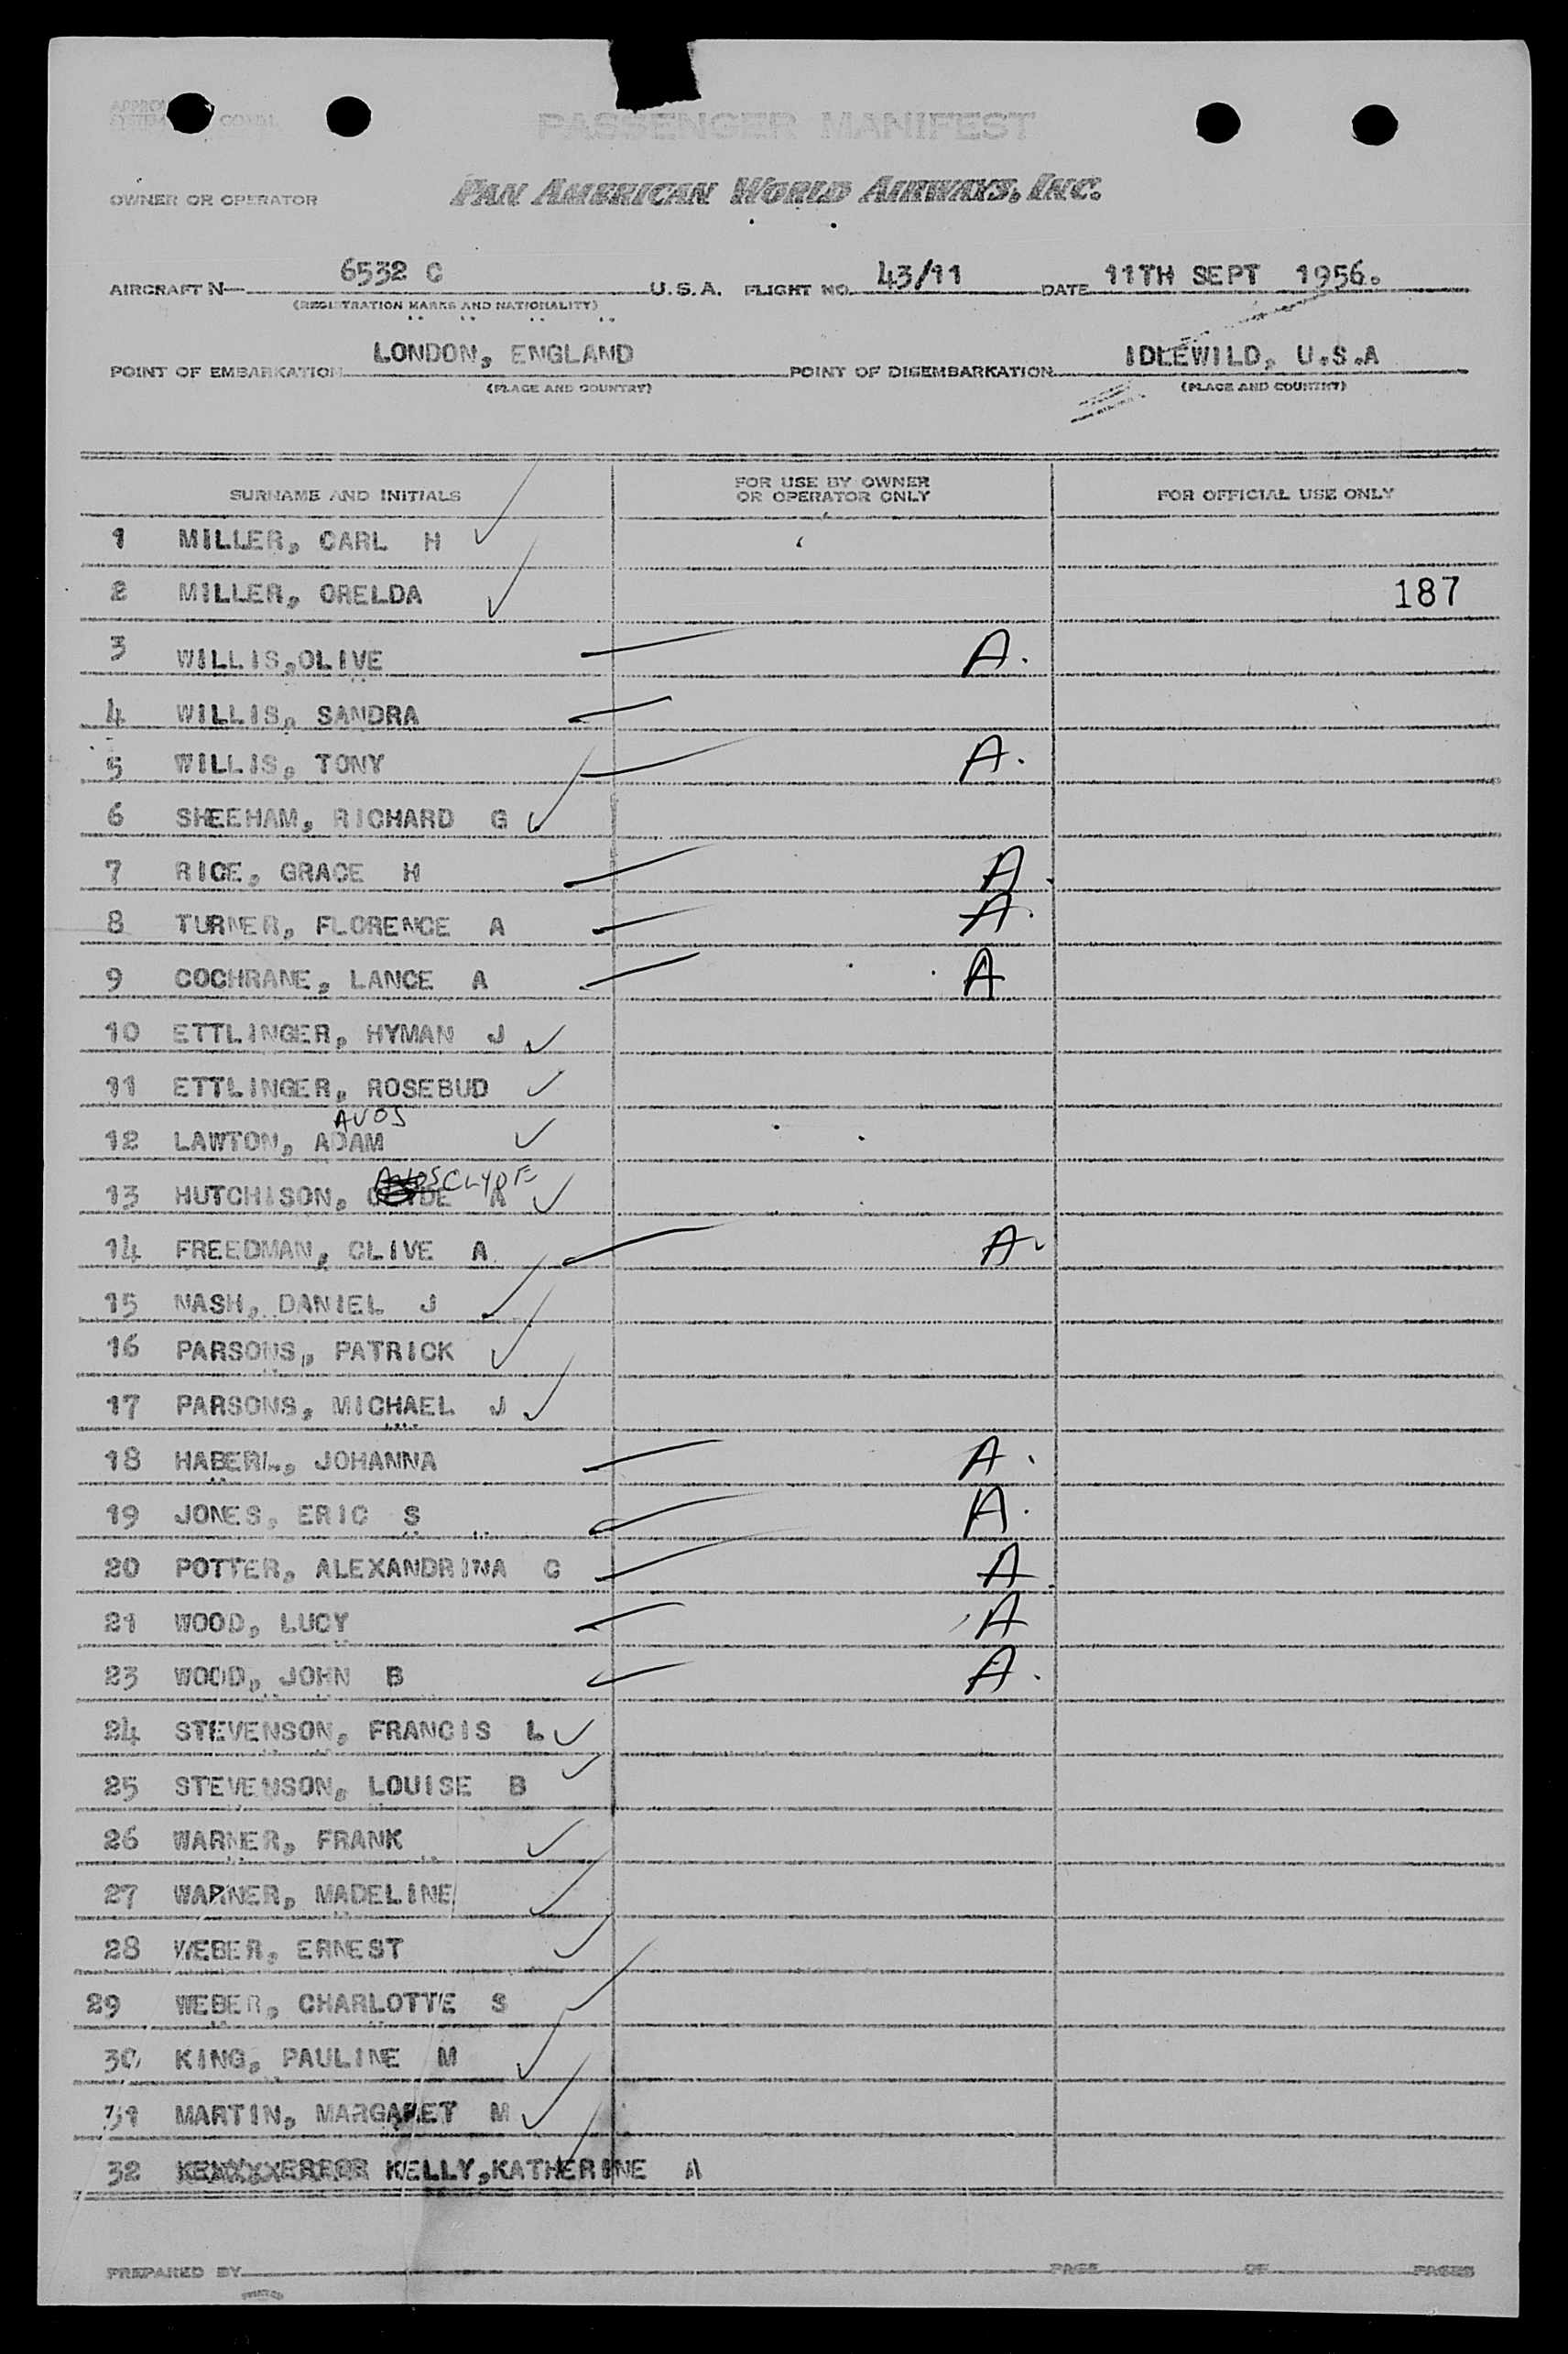 PASSENGER MANIFEST
OWNER OR OPERATOR PAN AMERICAN WORLD AIRWAYS, INC.
AIRCRAFT N— 6532 C U.S.A. FLIGHT NO. 43/11 DATE 11TH SEPT 1956.
(REGISTRATION MARKS AND NATIONALITY)
POINT OF EMBARKATION LONDON, ENGLAND POINT OF DISEMBARKATION IDLEWILD, U.S.A
(PLACE AND COUNTRY) (PLACE AND COUNTRY)
SURNAME AND INITIALS FOR USE BY OWNER OR OPERATOR ONLY FOR OFFICIAL USE ONLY
1 MILLER, CARL H
2 MILLER, ORELDA 187
3 WILLIS,OLIVE A.
4 WILLIS, SANDRA
5 WILLIS, TONY A.
6 SHEEHAM, RICHARD G
7 RICE, GRACE H A.
8 TURNER, FLORENCE A A.
9 COCHRANE, LANCE A A
10 ETTLINGER, HYMAN J
11 ETTLINGER, ROSEBUD
AVOS
12 LAWTON, ADAM
CLYDE
13 HUTCHISON, A
14 FREEDMAN, CLIVE A. A
15 NASH, DANIEL J
16 PARSONS, PATRICK
17 PARSONS, MICHAEL J
18 HABERL, JOHANNA A.
19 JONES, ERIC S A.
20 POTTER, ALEXANDRINA C A.
21 WOOD, LUCY A
23 WOOD, JOHN B A.
24 STEVENSON, FRANCIS L
25 STEVENSON, LOUISE B
26 WARNER, FRANK
27 WARNER, MADELINE
28 WEBER, ERNEST
29 WEBER, CHARLOTTE S
30 KING, PAULINE M
31 MARTIN, MARGARET M
32 KELLY,KATHERINE A
PREPARED BY PAGE OF PAGES